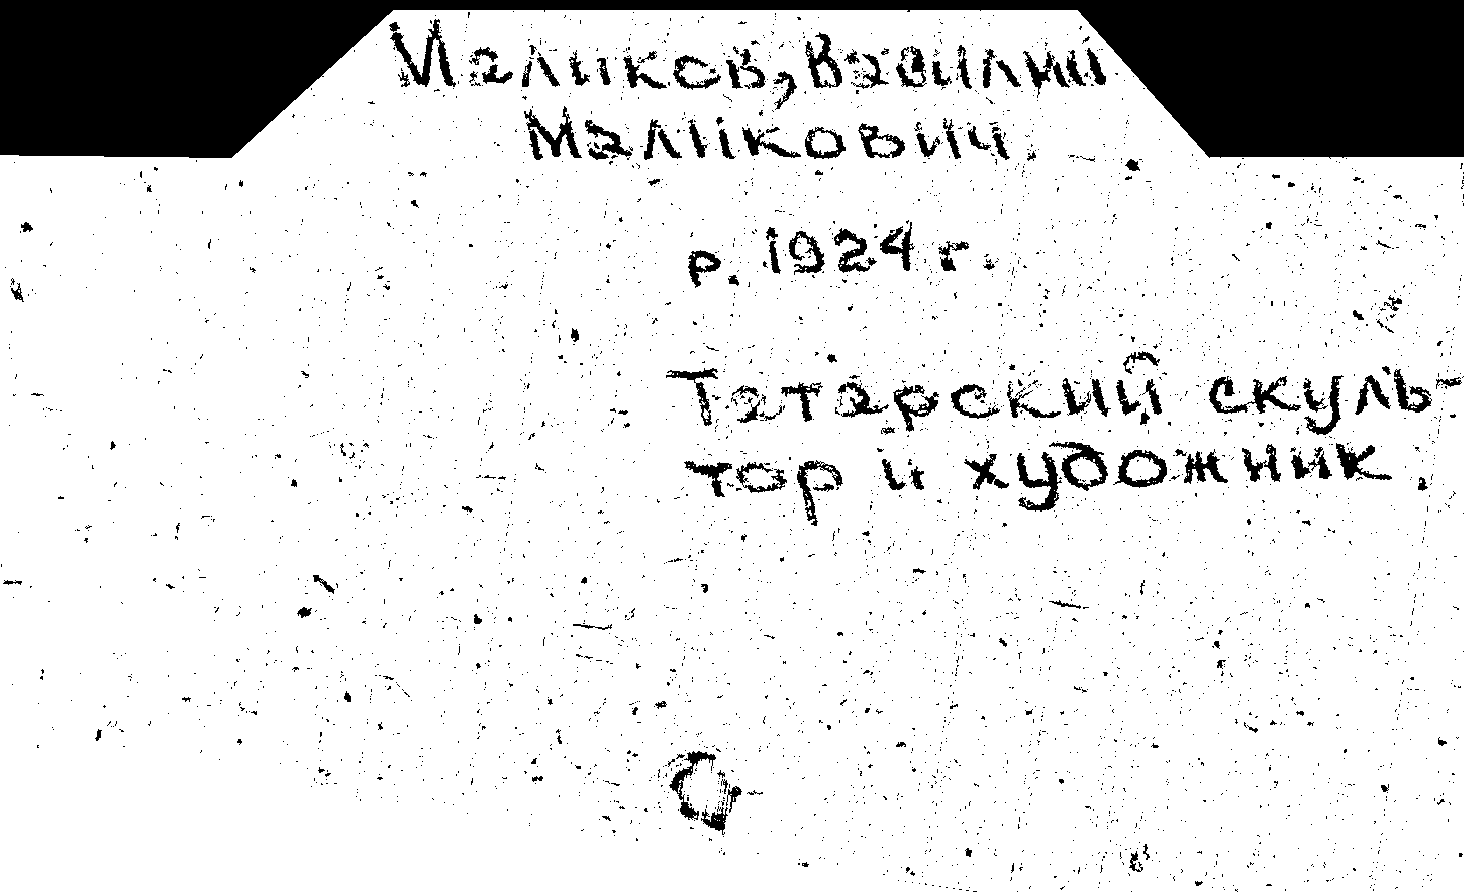 Маликов, Вавилий
Маликович
р. 1924 г.
Татарский скуль-
тор и художник.